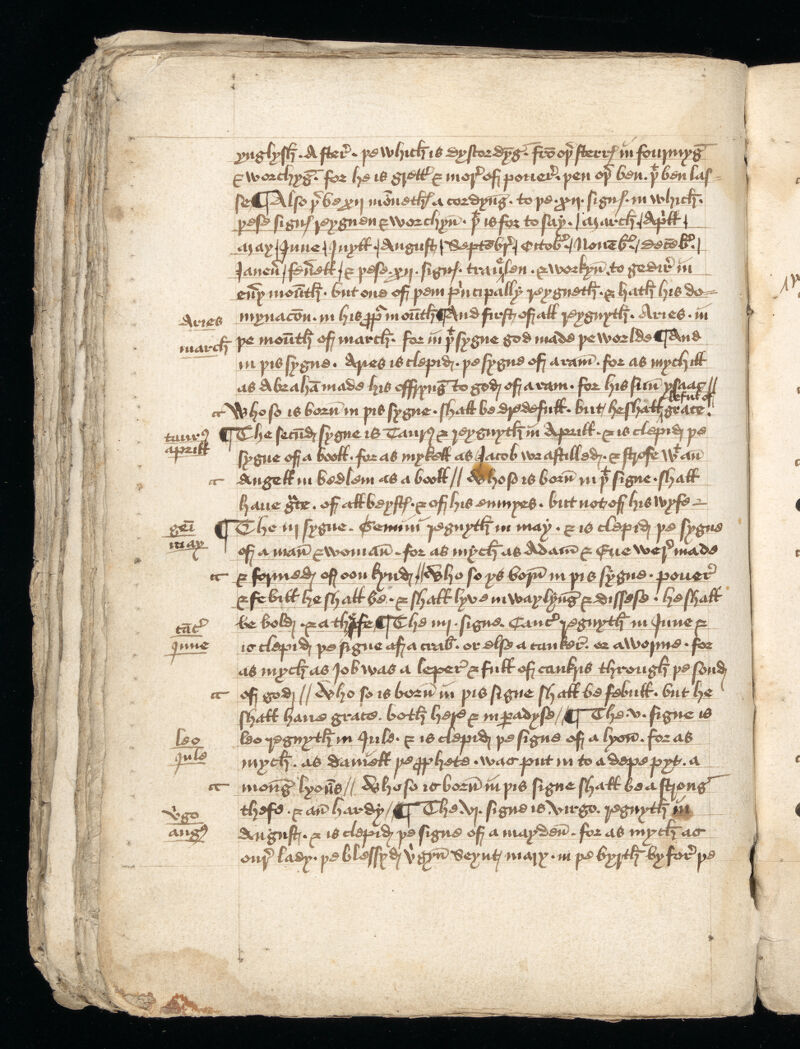 ynglysh · A sterr̄ · þe which is dystordyg̅ · fro oþ̉ sterrꝭ in fourmyg̅
& worchyg̅ · for he is grett & mor̉ of pouer̉ · þen oþ̉ ben · þ̉ ben las-
se ¶ Also þ̉ be xij monethꝭ a cordyng̅ · to þe · xij · signꝭ · in which ·
þese signꝭ reygnen & worchyn̅ · þ̉ is for to say · / march · / Ap̉ll /
may / June / Juyll / August / Septēbr̉ / Octob̉ / Nouēb̉ / decēb̉ /
Janeu̅ / feu̅ell / & þese · xij · signꝭ · traủlen · & workyn̅ · to gedir̉ in
eu̅y mōuth · but one of þem p̉ncipally reygneth · & hath his do-
mynac̅on · in his p̱p̉ mouth ¶ And first of all reygnyth · Aries · in
þe mōuth of march · for in þͭ sygne god made þe worlde ¶ And
in þis sygne · Aries is clepid · þe sygne of a ram̅ · for as mychill
as Abrahā made his offryng̅ to god of a ram · for his sun̅ ysaac //
Who so is born̅ in þis sygne · shall be dredefull · but he shall hafe ful of grace ·
¶ The secūd sygne is Taurꝰ & reygnyth in Aprill · & is clepid þe
sygne of a booll · for as mykell as Jacob wrastilled · & strofe wͭ an̅
Angell in bedlem as a booll // Who so is born̅ in þͭ signe · shall
haue gr̉ce · of all beystꝭ · & of his enmyes · but not of his wyfe –
¶ The iij sygne · Gemini regnyth in may · & is clepid þe sygne
of a man̅ & woman̅ · for as mych as Adam̅ & Eue wer̉ made
& formed of oon kynd // Who so ys born̅ in þis sygne · pouer̉
& febill he shall be · & shall lyve in waylyng̅ & dissese · he shall
be bold · & a thefe ¶ The iiij · signe · Canc̉ regnyth in June &
is clepid þe signe of a crab · or else a canker̉ · or a worme · for
as mych as Job was a leper̉ & full of cankris through þe sond
of god // Who so is born̅ in þis signe shall be febull · but he
shall haue grace · both here & in p̱adyse / ¶ The · v · signe is
leo regnyth in Jule · & is clepid þe signe of a lyon̅ · for as
mych · as daniell þe p̱phete · was put in to a depe pyt · a
mong̅ lyoūs // Who so is born̅ in þis signe shall be a strong
thefe · & an̅ hardy / ¶ The vi · signe is virgo · regnyth in
August · & is clepid þe signe of a mayden̅ · for as mych as
our̉ lady · þe blessyd v̉gyn̅ Seynt mary · in þe byrth byfor̉ þe
Aries
march
taurꝰ
aprill
gēi
may
cāc̉
June
leo
Jule
v̉go
augꝰ